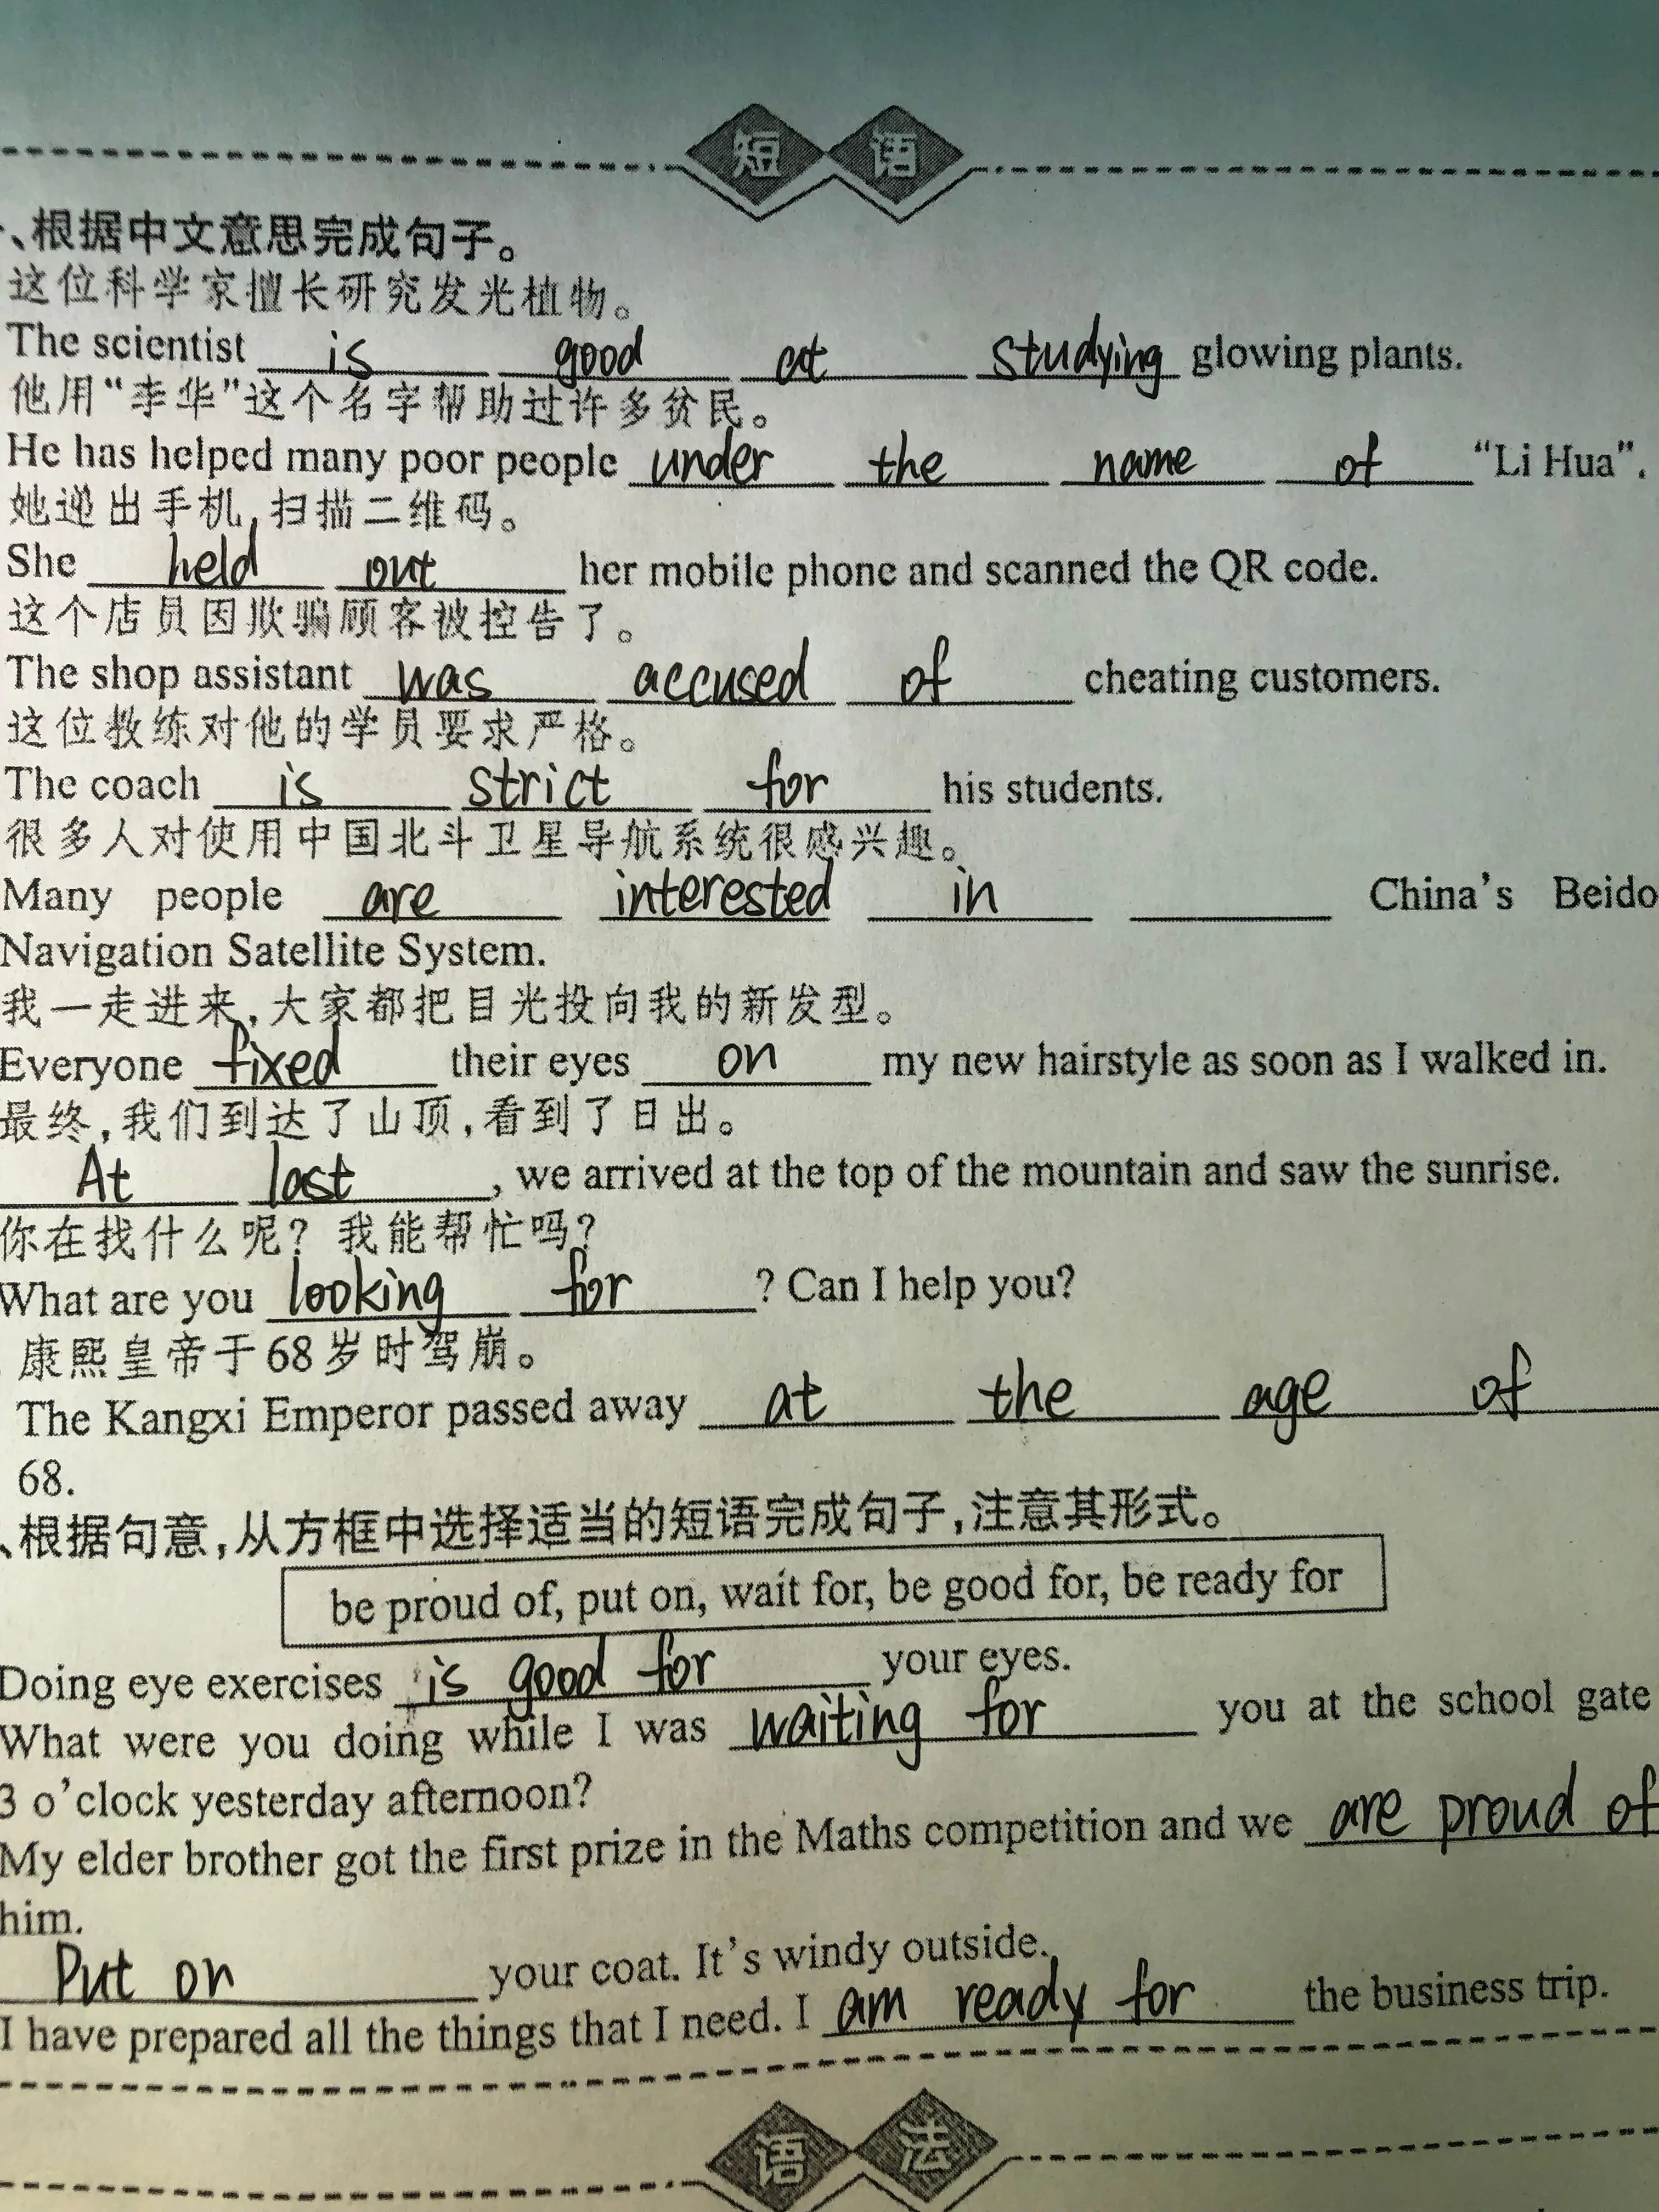 短语
、根据中文意思完成句子。
这位科学家擅长研究发光植物。
The scientist is good at studying glowing plants.
他用“李华”这个名字帮助过许多贫民。
He has helped many poor people under the name of “Li Hua”.
她递出手机,扫描二维码。
She held out her mobile phone and scanned the QR code.
这个店员因欺骗顾客被控告了。
The shop assistant was accused of cheating customers.
这位教练对他的学员要求严格。
The coach is strict for his students.
很多人对使用中国北斗卫星导航系统很感兴趣。
Many people are interested in ____ China’s Beido
Navigation Satellite System.
我一走进来,大家都把目光投向我的新发型。
Everyone fixed their eyes on my new hairstyle as soon as I walked in.
最终,我们到达了山顶,看到了日出。
At last, we arrived at the top of the mountain and saw the sunrise.
你在找什么呢?我能帮忙吗?
What are you looking for? Can I help you?
康熙皇帝于68岁时驾崩。
The Kangxi Emperor passed away at the age of
68.
、根据句意,从方框中选择适当的短语完成句子,注意其形式。
be proud of, put on, wait for, be good for, be ready for
Doing eye exercises is good for your eyes.
What were you doing while I was waiting for you at the school gate
3 o’clock yesterday afternoon?
My elder brother got the first prize in the Maths competition and we are proud of
him.
Put on your coat. It’s windy outside.
I have prepared all the things that I need. I am ready for the business trip.
语法